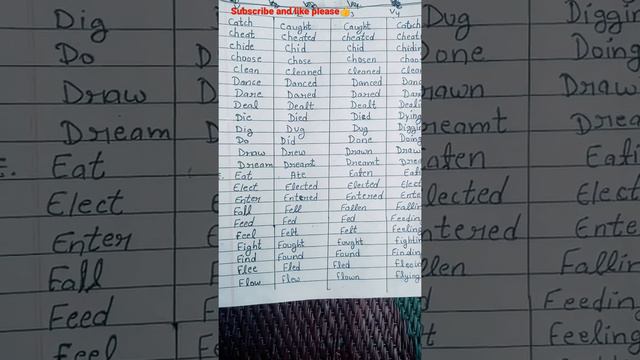 Subscribe and like please👍
3 V4
Catch Caught Caught Catch
cheat cheated cheated cheat
chide Chid Chid chidin
choose chose chosen choos
Clean Cleaned Cleaned Clean
Dance Danced Danced Danc
Dare Dared Dared Dari
Deal Dealt Dealt Deali
Die Died Died Dying
Dig Dug Dug Diggi
Do Did Done Doing
Draw Drew Drawn Draw
Dream Dreamt Dreamt Drea
Eat Ate Eaten Eati
Elect Elected Elected Elect
Enter Entered Entered Ente
Fall Fell Fallen Fallin
Feed Fed Fed Feedin
Feel Felt Felt Feeling
Fight Fought fought fighti
Find Found Found Findin
Flee Fled Fled fleein
Flow Flow Flown flying
Dig
Do
Draw
Dream
Eat
Elect
Enter
Fall
Feed
Feel
Dug Diggin
Done Doing
rawn Draw
reamt Drea
aten Eati
lected Elect
ntered Ente
llen Fallin
Feedin
t Feeling